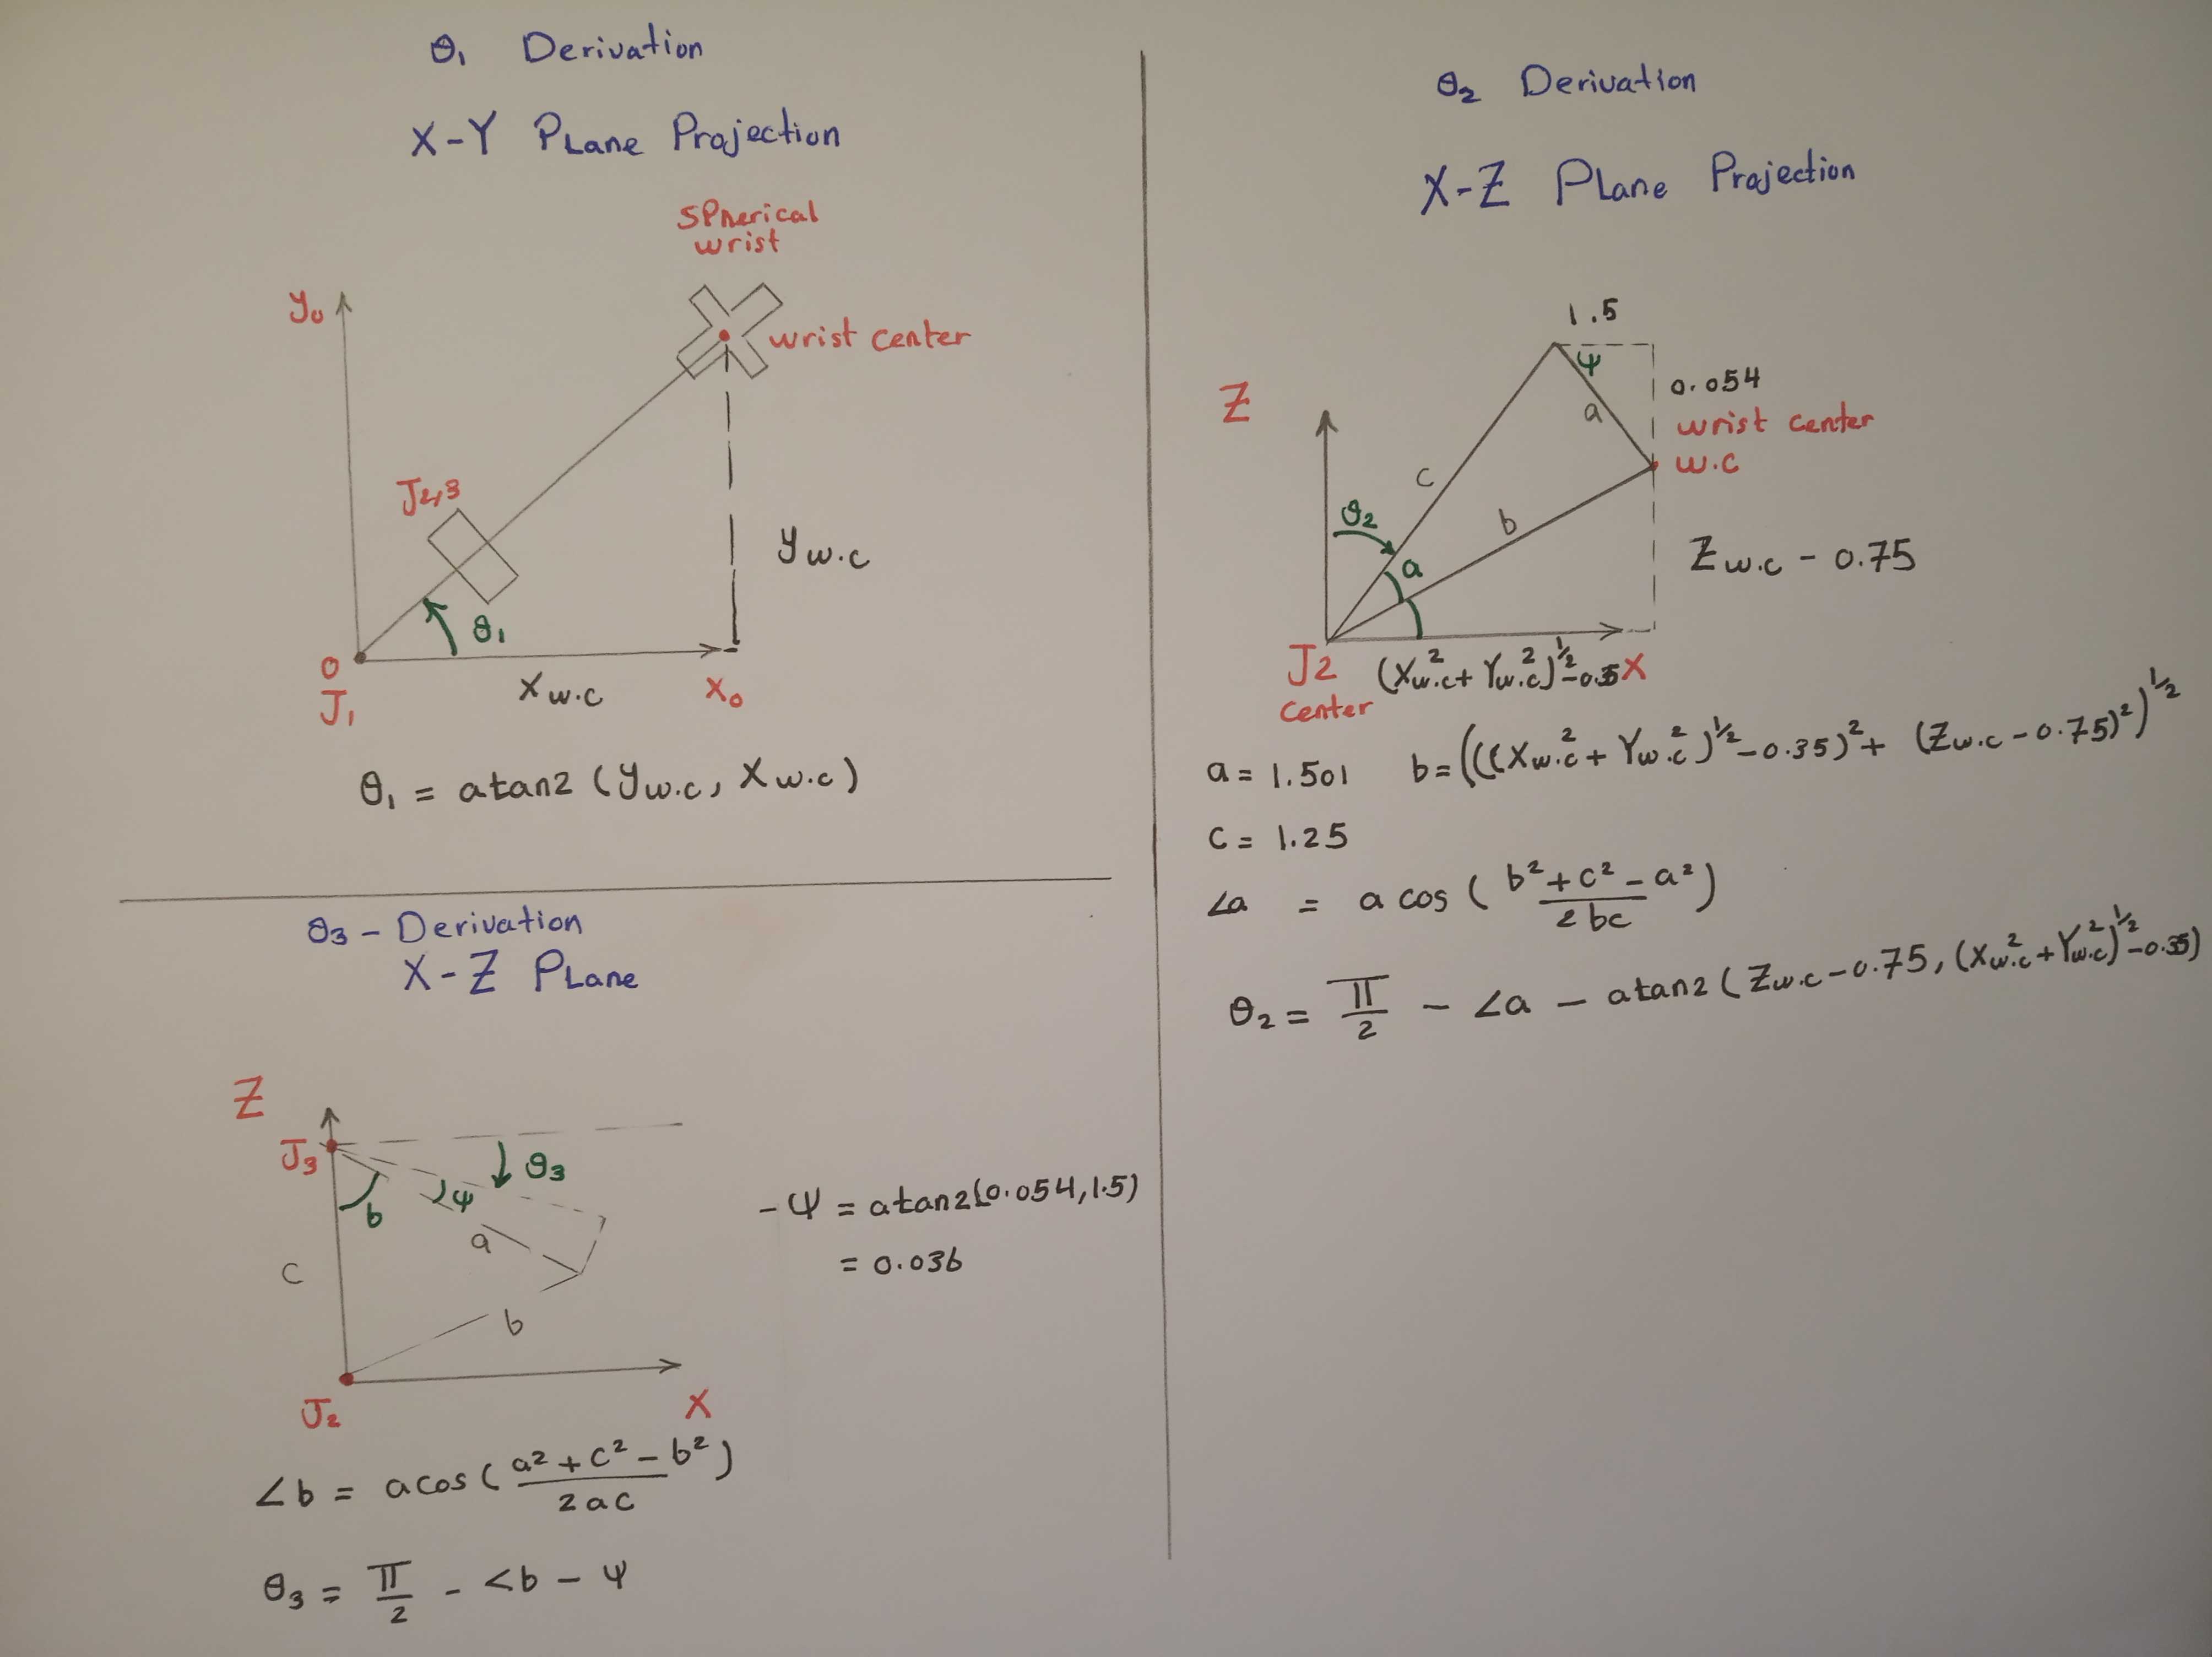 θ₁ Derivation
X-Y PLane Projection
SPherical
wrist
y₀
wrist center
J₂,₃
y w.c
θ₁
O
J₁
X w.c
X₀
θ₁ = atan2 (y w.c, X w.c)
θ₃ - Derivation
X-Z PLane
Z
J₃
θ₃
ψ
b
a
c
b
J₂
X
-ψ = atan2(0.054,1.5)
= 0.036
∠b = acos( (a² + c² - b²) / 2ac )
θ₃ = π/2 - <b - ψ
θ₂ Derivation
X-Z PLane Projection
1.5
ψ
0.054
Z
a
wrist center
w.c
c
θ₂
b
a
Z w.c - 0.75
J2
center
(X w.c² + Y w.c²)^½ - 0.35
X
a = 1.501 b = (((X w.c² + Y w.c²)^½ - 0.35)² + (Z w.c - 0.75)²)^½
c = 1.25
∠a = acos( (b² + c² - a²) / 2bc )
θ₂ = π/2 - ∠a - atan2( Z w.c - 0.75, (X w.c² + Y w.c²)^½ - 0.35)